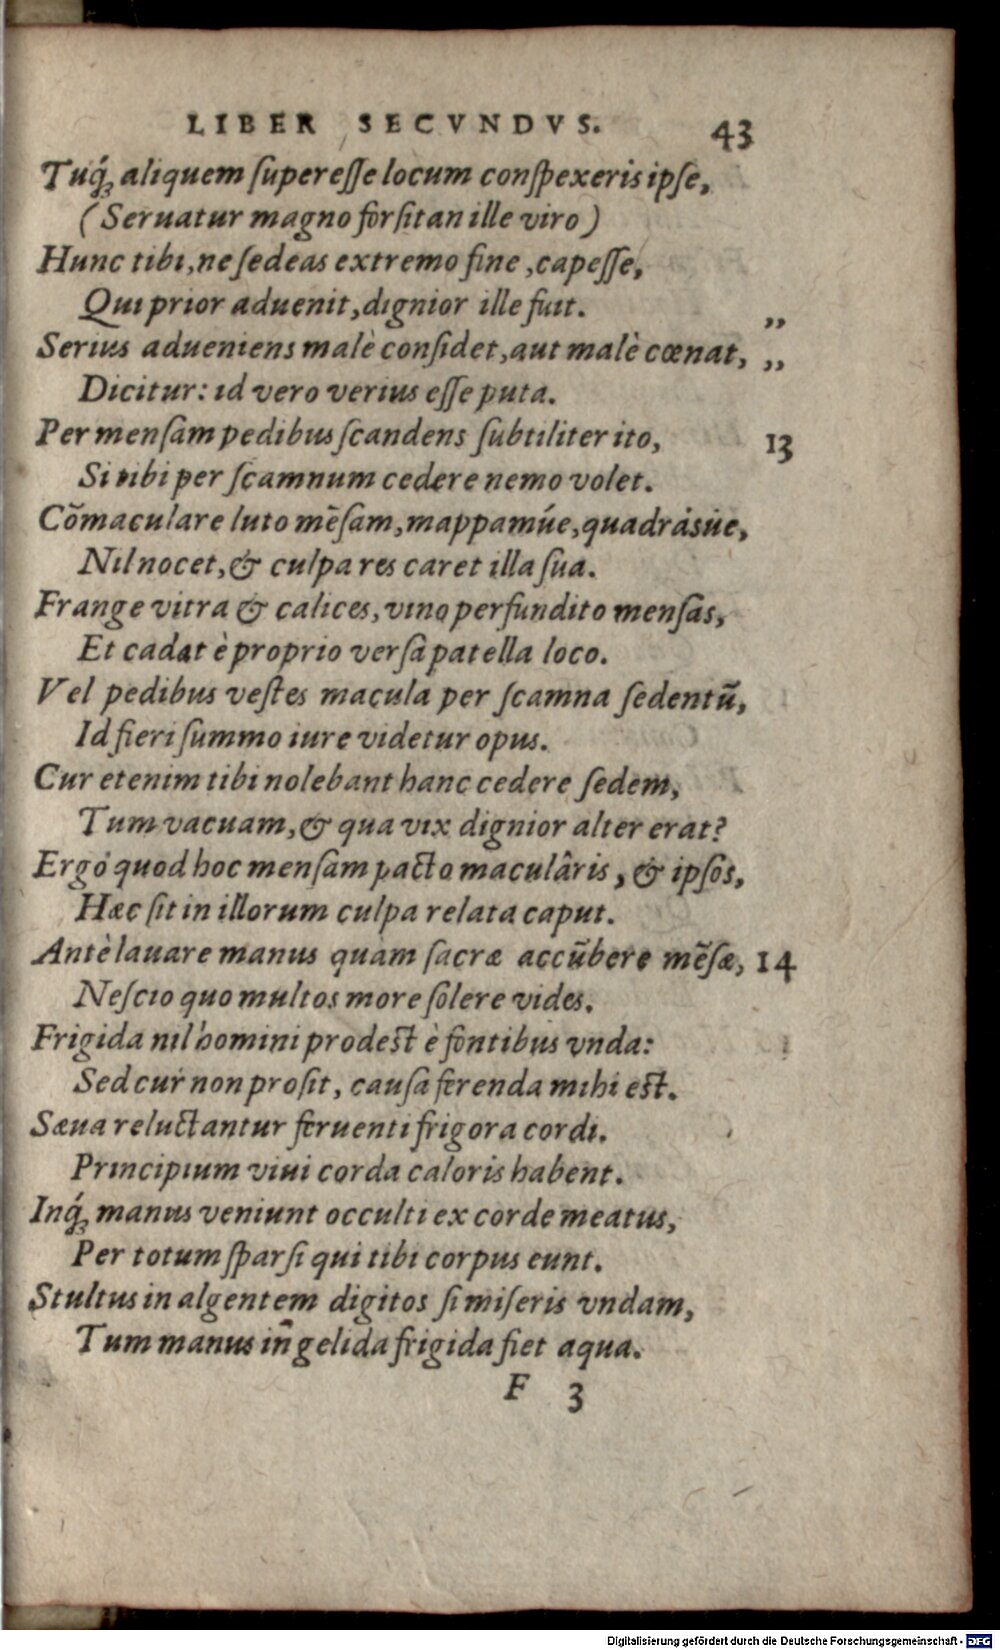 LIBER SECVNDVS. 43
Tuq́ꝫ aliquem ſupereſſe locum conſpexeris ipſe,
(Seruatur magno forſitan ille viro)
Hunc tibi, ne ſedeas extremo fine, capeſſe,
Qui prior aduenit, dignior ille fuit. „
Serius adueniens malè conſidet, aut malè cœnat, „
Dicitur: id vero verius eſſe puta.
Per menſam pedibus ſcandens ſubtiliter ito, 13
Si tibi per ſcamnum cedere nemo volet.
Cõmaculare luto mẽſam, mappamúe, quadrásúe,
Nil nocet, & culpa res caret illa ſua.
Frange vitra & calices, vino perfundito menſas,
Et cadat è proprio verſa patella loco.
Vel pedibus veſtes macula per ſcamna ſedentũ,
Id fieri ſummo iure videtur opus.
Cur etenim tibi nolebant hanc cedere ſedem,
Tum vacuam, & qua vix dignior alter erat?
Ergò quod hoc menſam pacto maculâris, & ipſos,
Hæc ſit in illorum culpa relata caput.
Antè lauare manus quàm ſacræ accũbere mẽſæ, 14
Neſcio quo multos more ſolere vides.
Frigida nil homini prodeſt è fontibus vnda:
Sed cur non proſit, cauſa ferenda mihi eſt.
Sæua reluctantur feruenti frigora cordi.
Principium viui corda caloris habent.
Inq́ꝫ manus veniunt occulti ex corde meatus,
Per totum ſparſi qui tibi corpus eunt.
Stultus in algentem digitos ſi miſeris vndam,
Tum manus iñ gelida frigida fiet aqua.
F 3
Digitalisierung gefördert durch die Deutsche Forschungsgemeinschaft - DFG